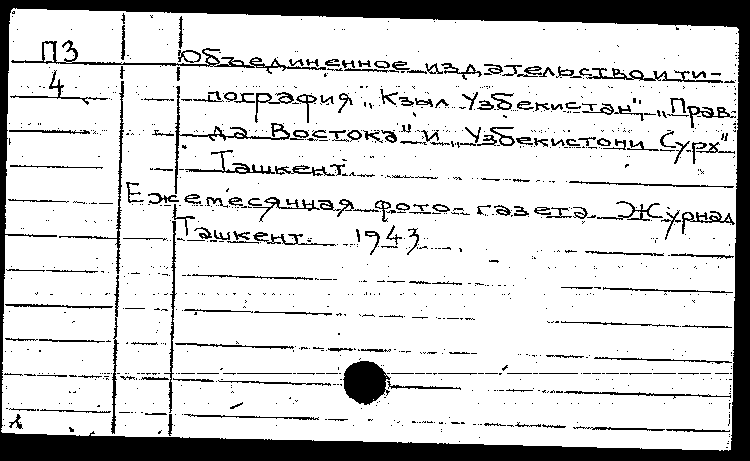 ПЗ
4
Объединенное издательство и ти-
пография „Кзыл Узбекистан", „Прав-
да Востока" и „Узбекистони Сурх"
Ташкент.
Ежемесячная фото-газета. Журнал
Ташкент. 1943